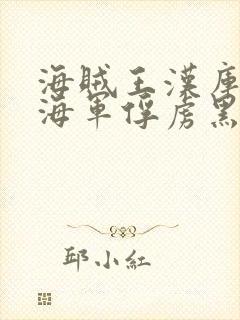 海賊王漢庫
海軍俘虜黑
邱小紅